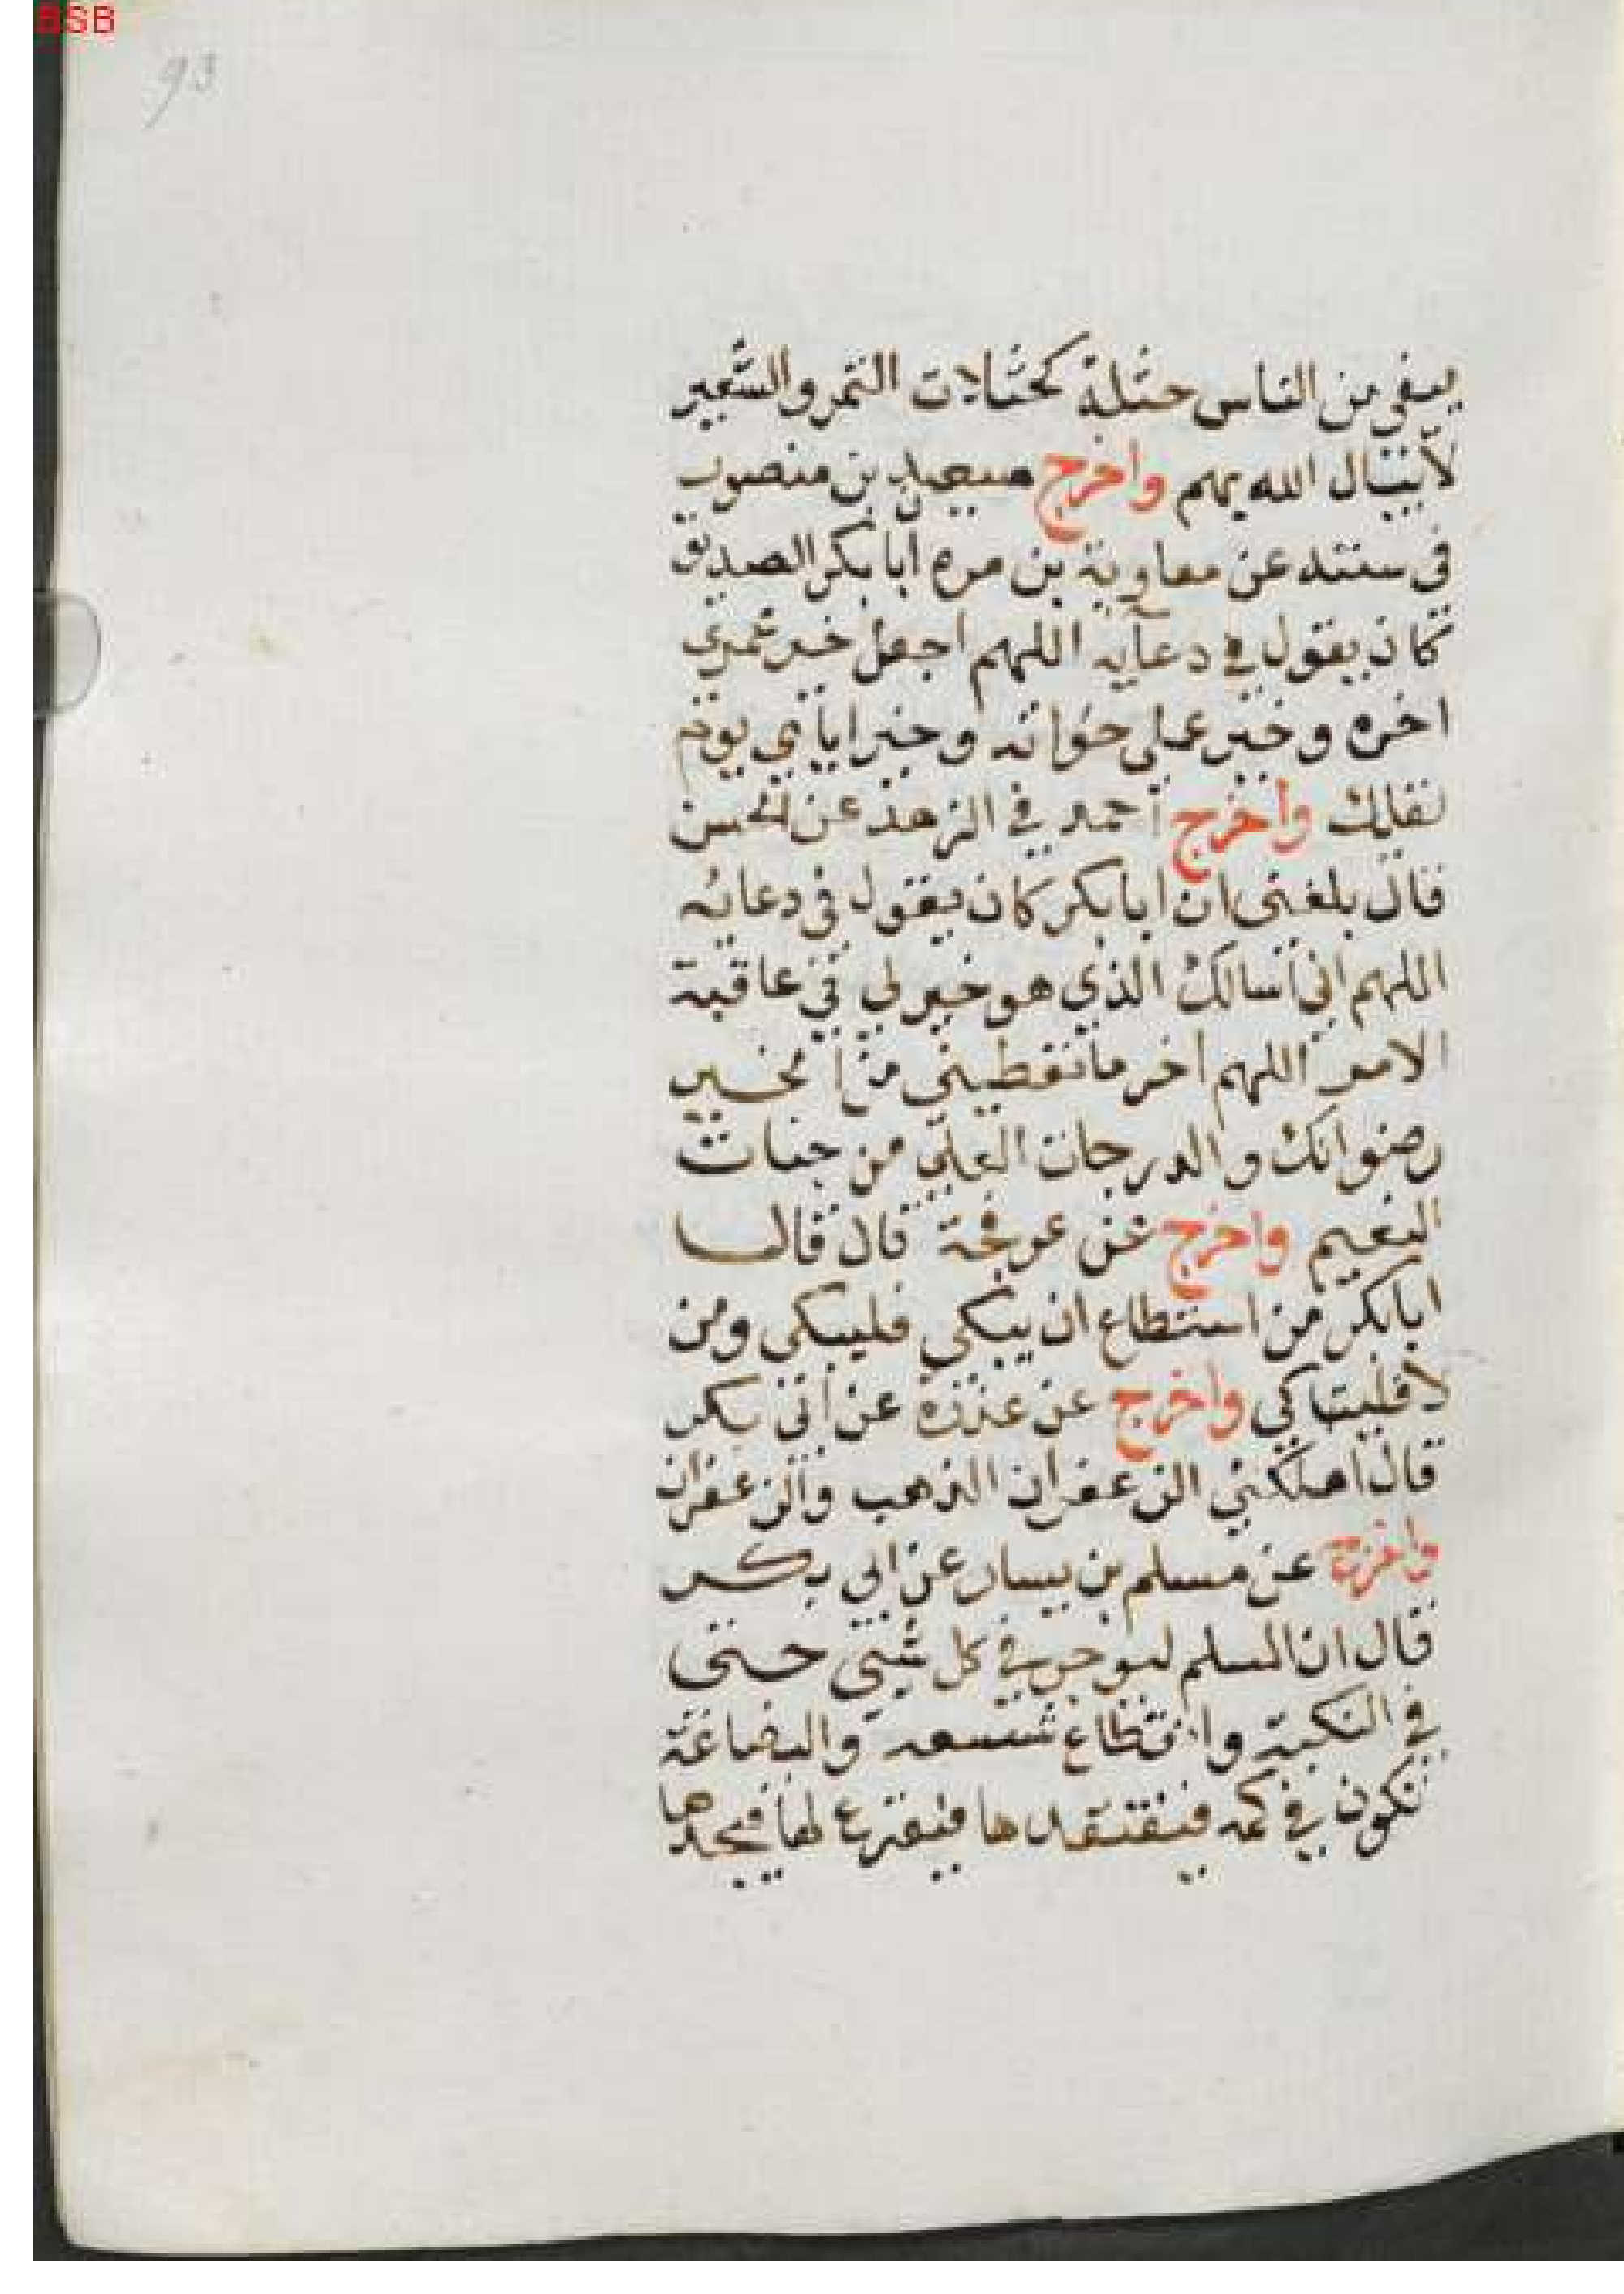 BSB
93
يبقى من الناس حثلة كحثلات التمر والشعير
لا يبال الله بهم واخرج سعيد بن منصور
في سننه عن معاوية بن مره أبا بكر الصديق
كان يقول في دعآيه اللهم اجعل خير عمري
اخره وخير عملي خواتمه وخير ايامي يوم
لقايك واخرج أحمد في الزهد عن الحسن
قال بلغني ان ابا بكر كان يقول في دعائه
اللهم اني أسالك الذي هو خير لي في عاقبة
الامور اللهم اخر ما تعطيني من الخير
رضوانك والدرجات العلي من جنات
النعيم واخرج عن عرفجة قال قال
ابا بكر من استطاع ان يبكي فليبكي ومن
لا فليتباكي واخرج عن عزرة عن أبي بكر
قال اهلكني الزعفران الذهب والزعفران
واخرج عن مسلم بن يسار عن ابي بكر
قال ان المسلم ليوجر في كل شيي حتى
في النكبة وانقطاع شسعه والبضاعة
تكون في كمه فيفتقدها فيفزع لها فيجدها